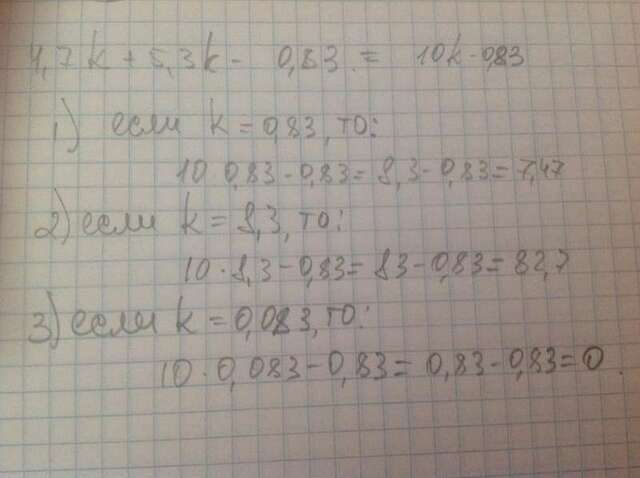 4,7k + 5,3k - 0,83 = 10k - 0,83
1) если k = 0,83, то:
10 0,83 - 0,83 = 8,3 - 0,83 = 7,47
2) если k = 8,3, то:
10 · 8,3 - 0,83 = 83 - 0,83 = 82,7
3) если k = 0,083, то:
10 · 0,083 - 0,83 = 0,83 - 0,83 = 0